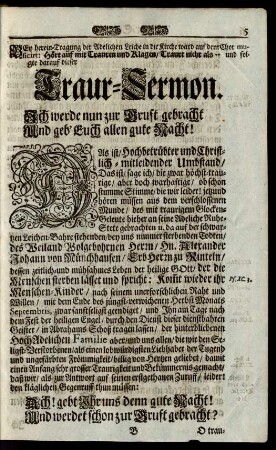 5
BEy herein-Tragung der Adelichen Leiche in die Kirche ward auf dem Chor mu-
siciret: Hört auf mit Trauren und Klagen/ Trauret nicht als -- und fol-
gte darauf dieser
Traur-Sermon.
Ich werde nun zur Gruft gebracht
Und geb' Euch allen gute Nacht!
DAs ist/ Hochbetrübter und Christ-
lich mitleidender Umstand/
Das ist/ sage ich/ die zwar höchst-trauri-
ge/ aber doch warhaftige/ da schon
stumme Stimme/ die wir leider! jetzund
hören müssen auß dem verschlossenen
Munde/ des mit traurigem Glocken-
Geleute bisher an seine Adeliche Ruhe-
Stete gebrachten u. da auf der schwar-
zen Leichen-Bahre stehenden/ des sag' ich nimmer sterbenden Todten/
des Weiland Wolgebohrnen Herrn/ Hn. Alexander
Johann von Münchhausen/ Erb Herrn zu Rinteln/
dessen zeitlich- und mühsahmes Leben der heilige GOtt/ der die
Menschen sterben lässt und spricht: Komt wieder ihr
Menschen-Kinder/ nach seinem unerforschlichen Raht und
Willen/ mit dem Ende des jüngst-verwichenen Herbst Monats
Septembris, gar sanft seligst geendiget/ und Ihn am Tage nach
dem Fest der heiligen Engel/ durch den Dienst dieser dienstbahren
Geister/ in Abrahams Schoß tragen lassen/ der hinterbliebenen
Hoch Adelichen Familie aber und uns allen/ die wir den Se-
ligst-Verstorbenen/ als einen lobwürdigsten Liebhaber der Tugend
und ungefärbten Frömmigkeit/ billig von Hertzen geliebet/ damit
einen Anfang sehr grosser Traurigkeit und Bekümmernis gemacht/
daß wir/ als zur Antwort auf seinen erstgethanen Zuruff/ seinder
den kläglichen Gegenruff thun müssen:
Ach! gebt Ihr uns denn gute Nacht!
Und werdet schon zur Gruft gebracht?
B
O trau-